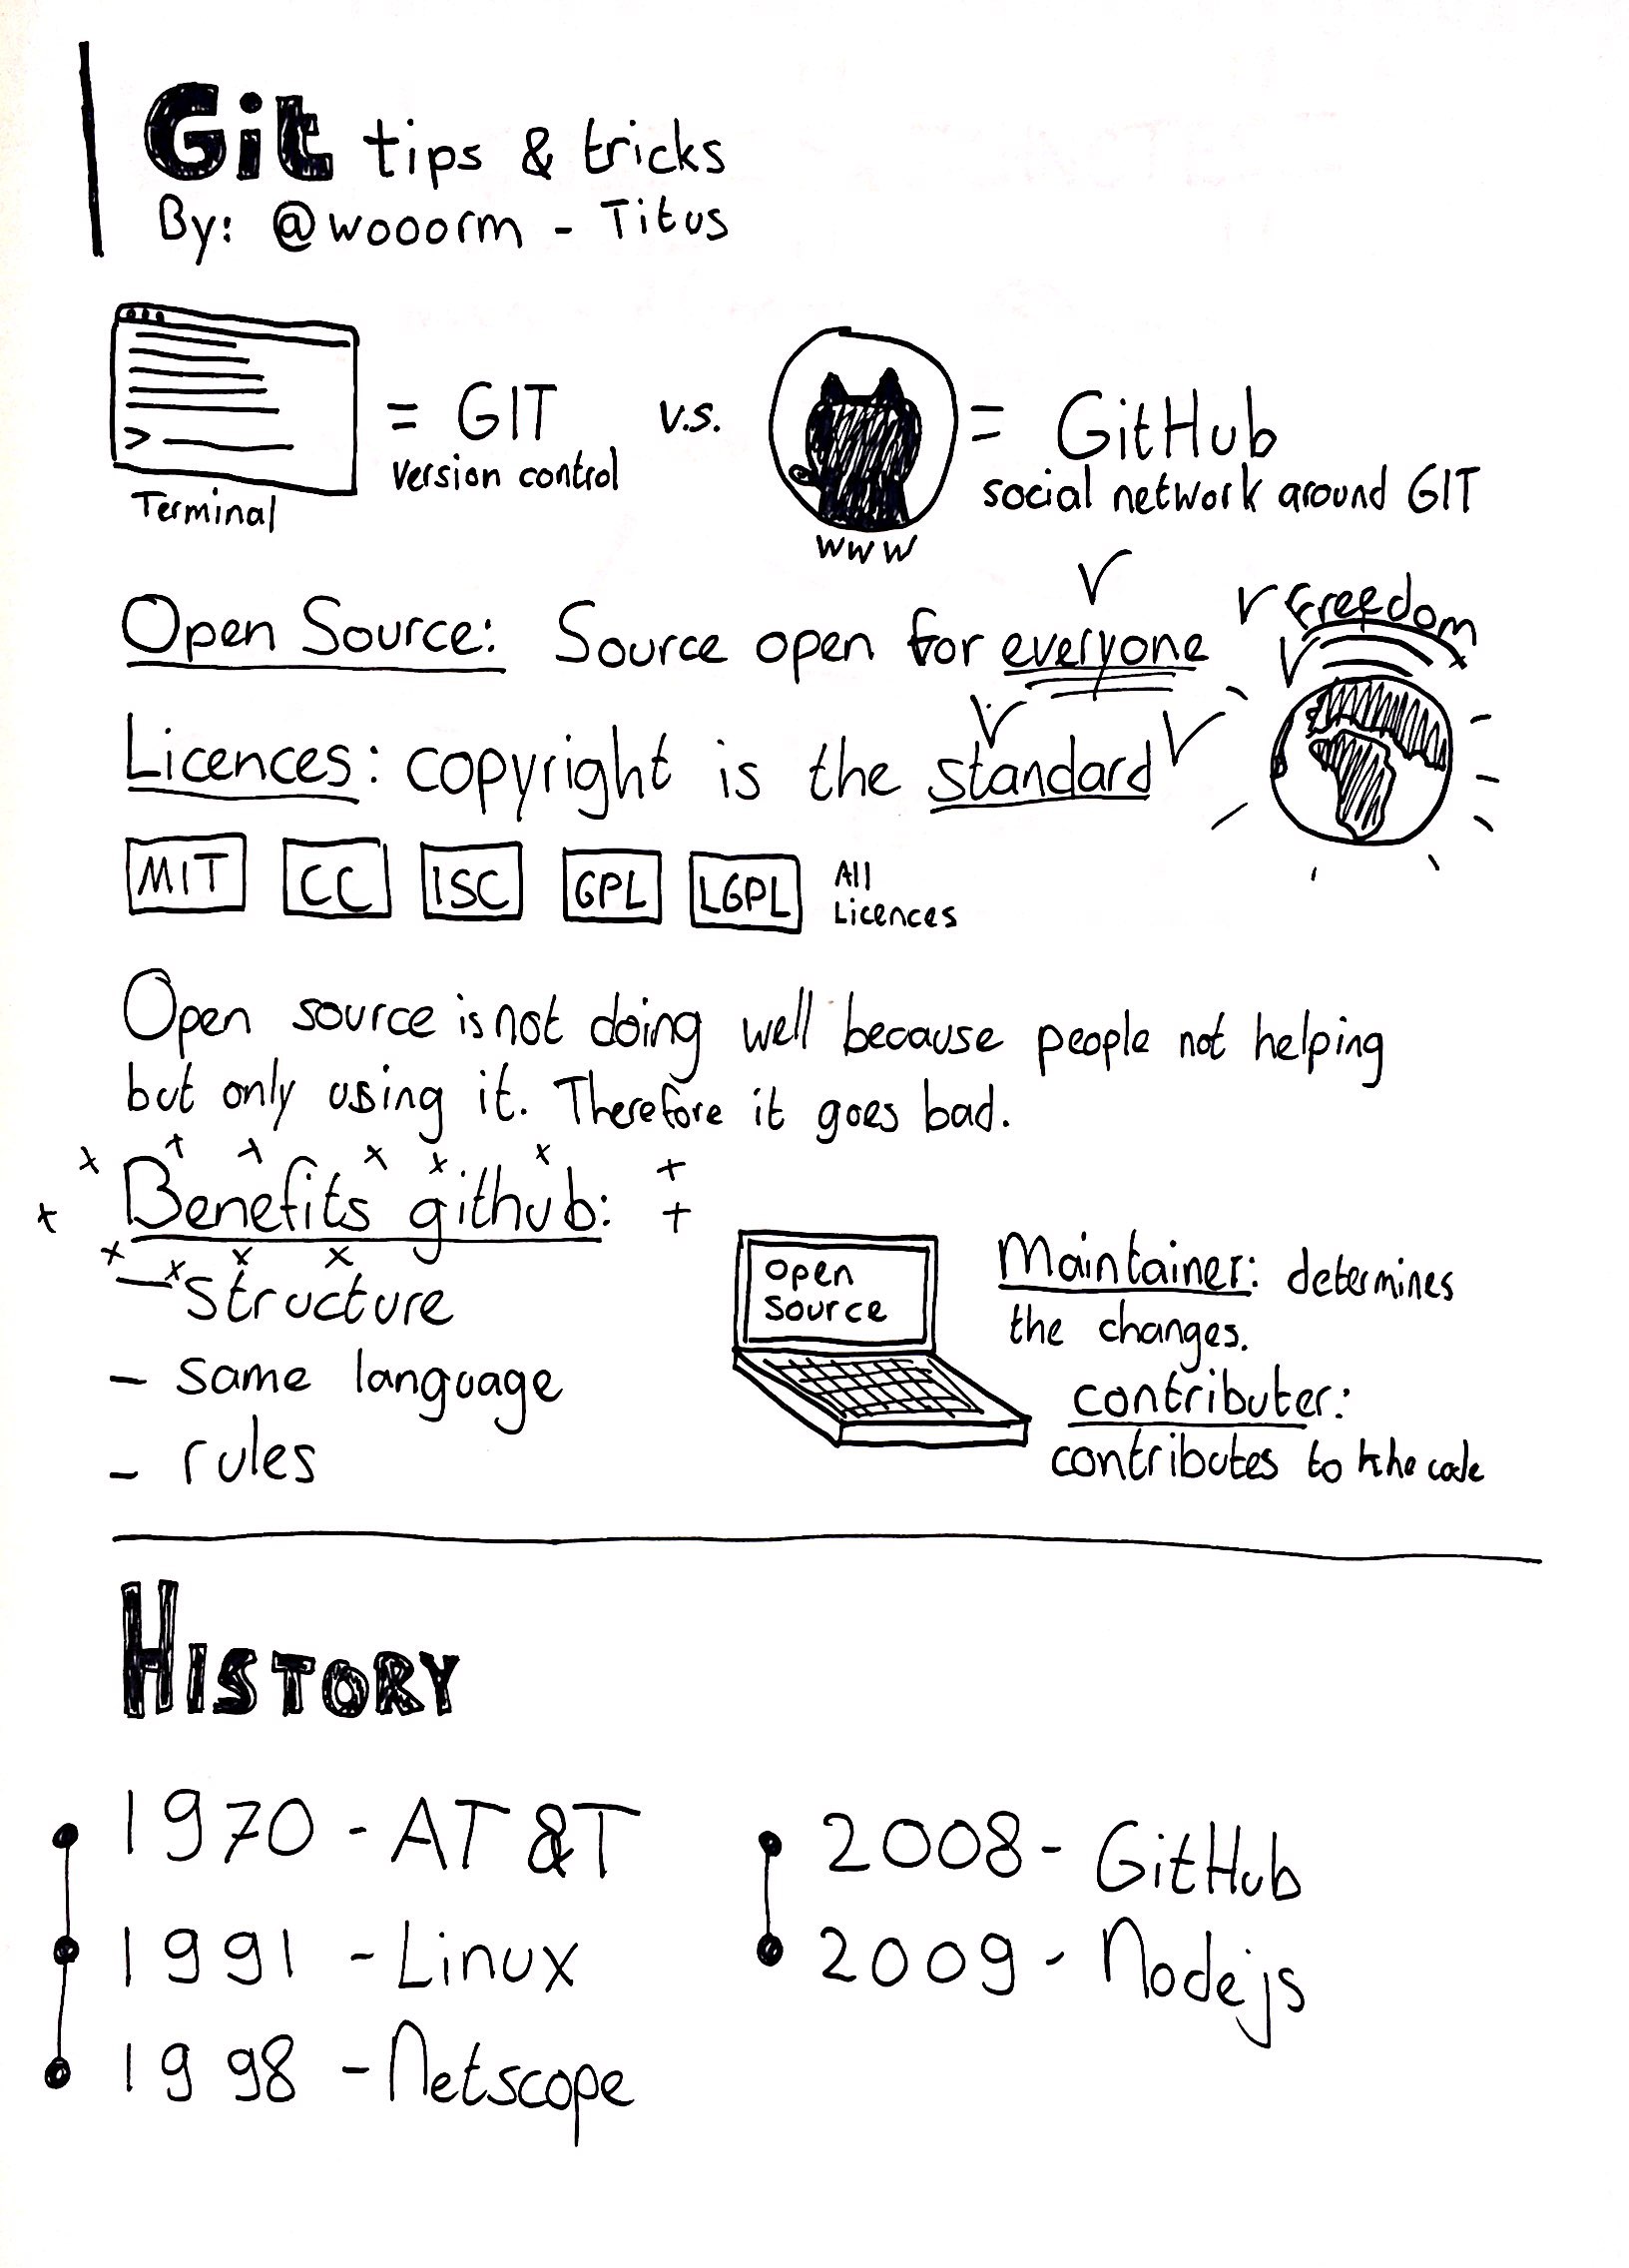 Git tips & tricks
By: @wooorm - Titus
= GIT v.s. = GitHub
version control
social network around GIT
Terminal
www
Freedom
Open Source: Source open for everyone
Licences: copyright is the standard
MIT CC ISC GPL LGPL All
Licences
Open source is not doing well because people not helping
but only using it. Therefore it goes bad.
Benefits github:
- structure
- same language
- rules
open
source
Maintainer: determines
the changes.
contributer:
contributes to the code
HISTORY
1970 - AT&T
1991 - Linux
1998 - Netscope
2008 - GitHub
2009 - Nodejs